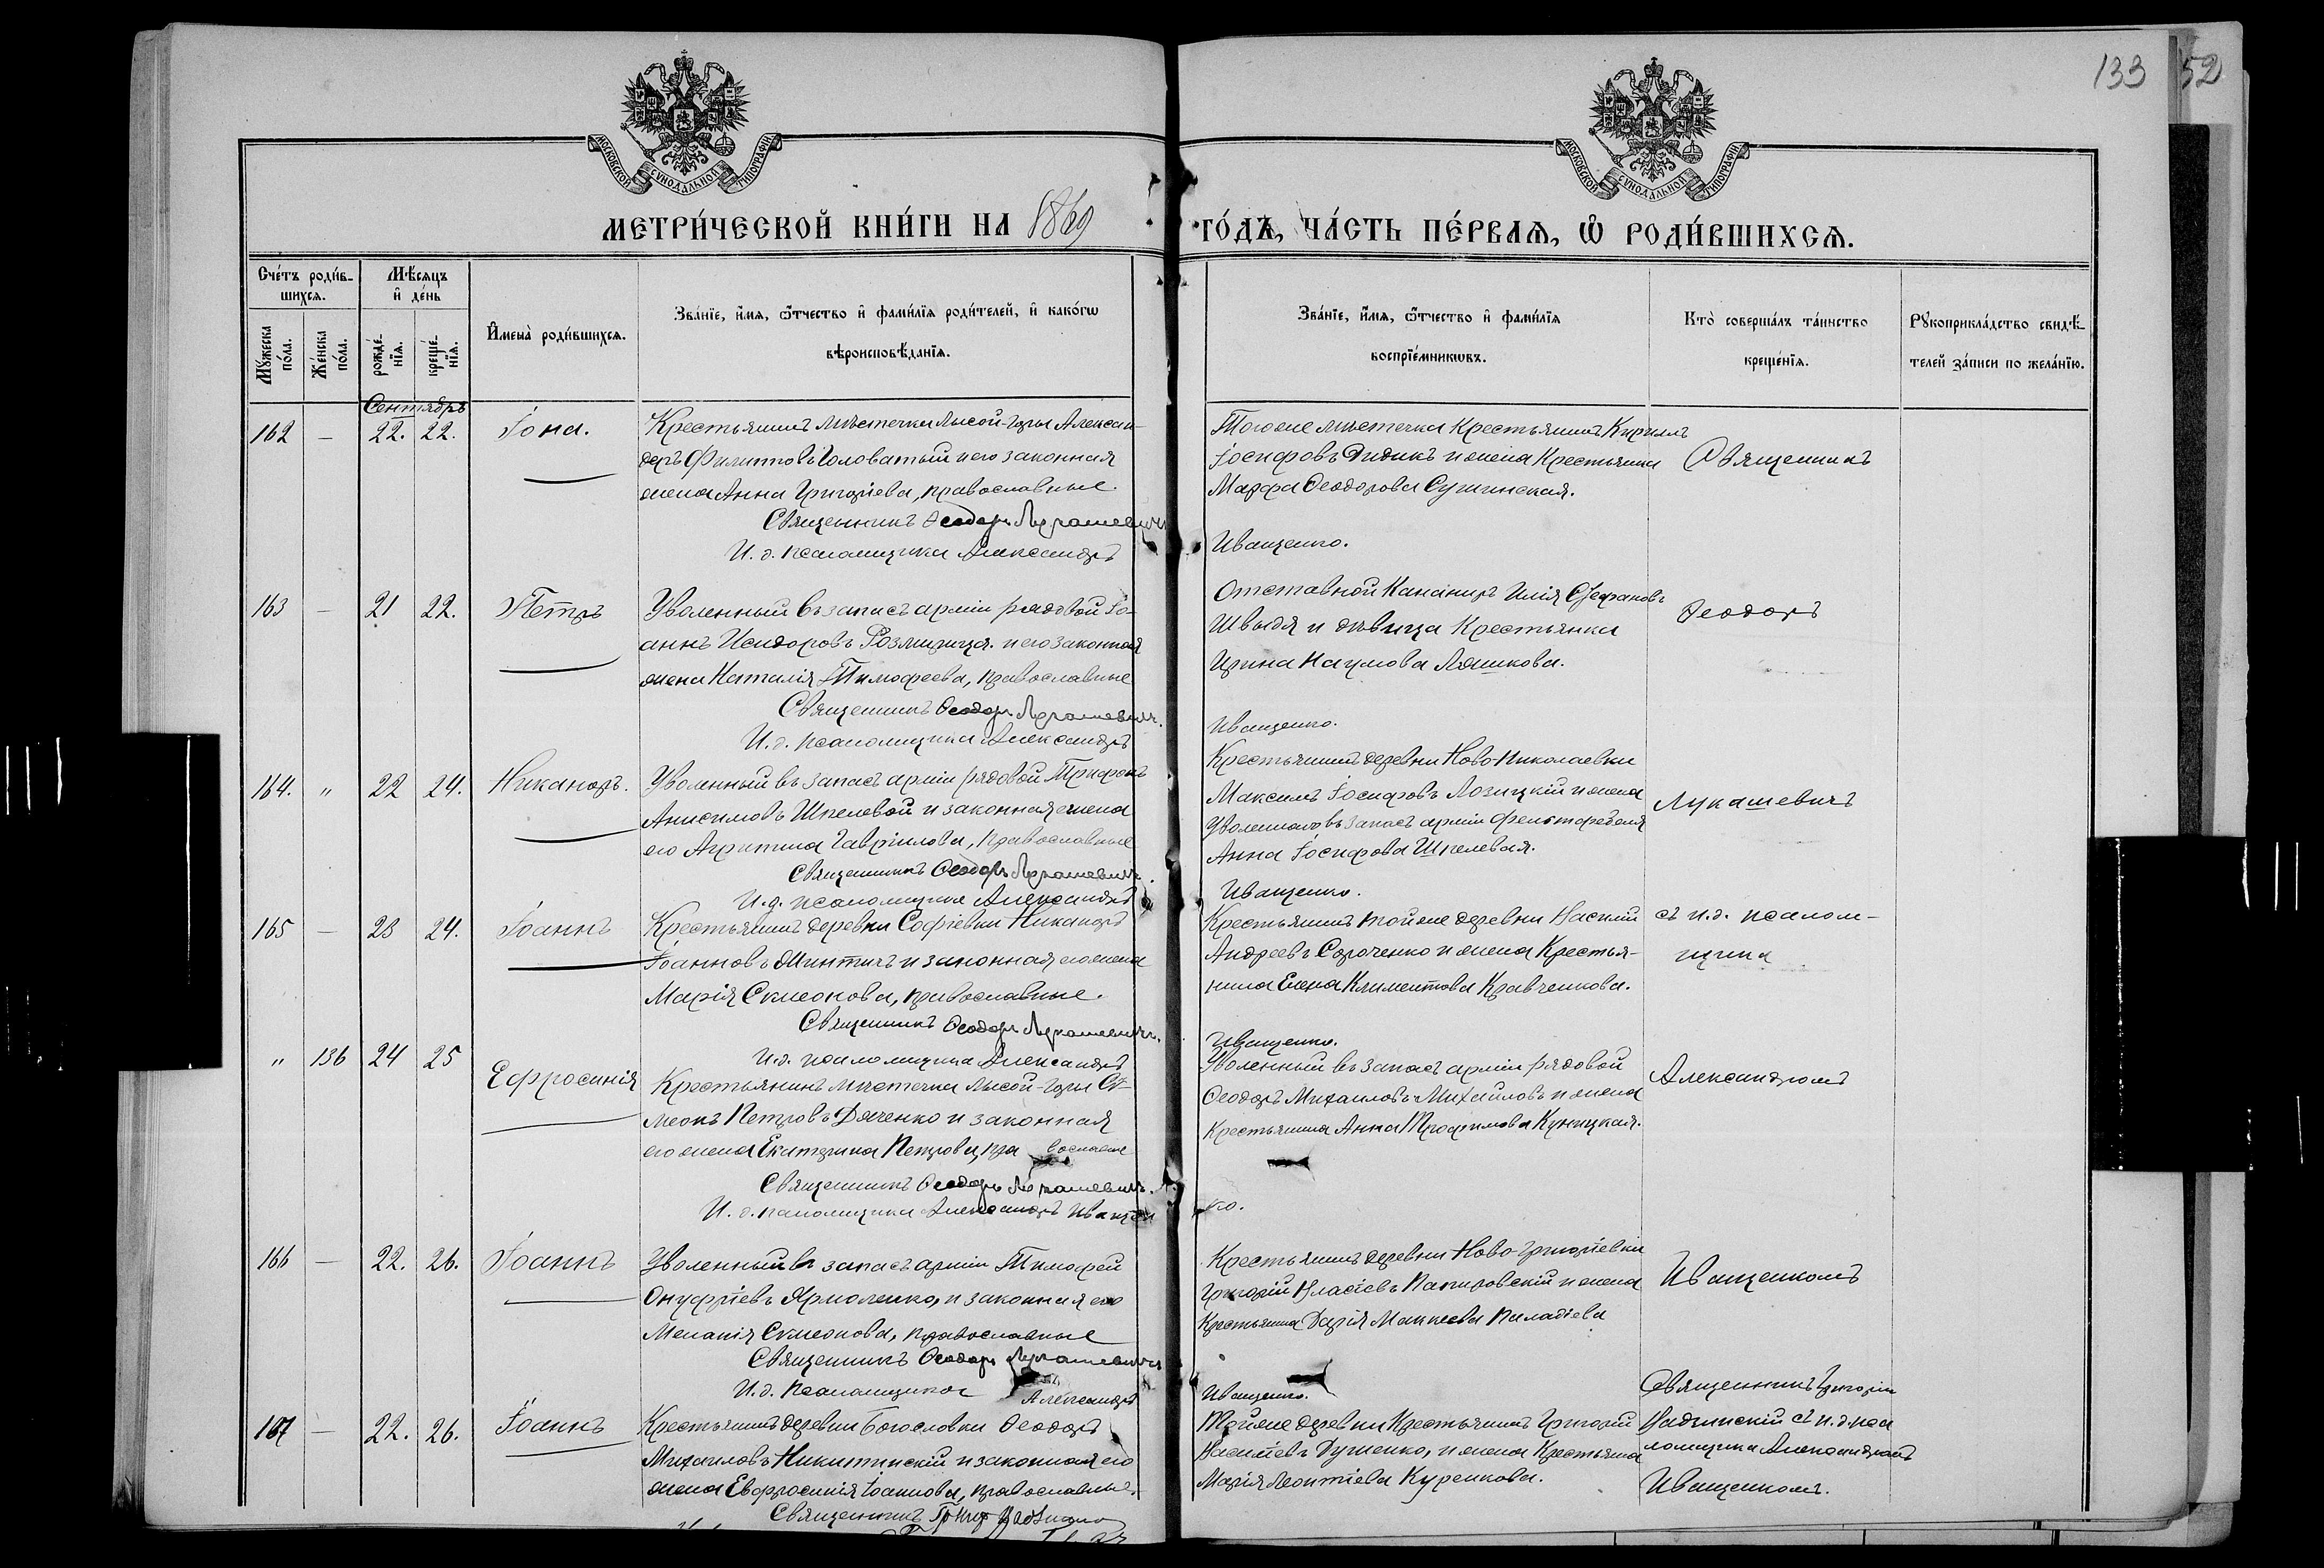 133 52
МОСКОВСКОЙ СѴНОДАЛЬНОЙ ТИПОГРАФІИ
МОСКОВСКОЙ СѴНОДАЛЬНОЙ ТИПОГРАФІИ
МЕТРИ́ЧЕСКОЙ КНИ́ГИ НА 1869 ГО́ДЪ, ЧА́СТЬ ПЕ́РВАѦ, Ѡ РОДИ́ВШИХСѦ.
Сче́тъ роди́в-
шихсѧ.
Мѣ́сѧцъ
и де́нь
Мꙋ́жеска по́ла.
Же́нска по́ла.
рожде́-нїѧ.
креще́-нїѧ.
Имена̀ роди́вшихсѧ.
Зва́нїе, и́мѧ, ѻ́тчество и фами́лїѧ роди́телей, и како́гѡ
вѣроисповѣ́данїѧ.
Зва́нїе, и́мѧ, ѻ́тчество и фами́лїѧ
воспрїе́мникѡвъ.
Кто̀ соверша́лъ та́инство
креще́нїѧ.
Рꙋкоприкла́дство свидѣ́-
телей за́писи по жела́нїю.
Сентябрь
162 — 22. 22. Іона.
Крестьянинъ мѣстечка Лысой-Горы Алексан-
деръ Филиповъ Головатый и его законная
жена Анна Григоріева, православные.
Священникъ Ѳеодоръ Лукашевичъ
И. д. псаломщика Александръ
Тогоже мѣстечка Крестьянинъ Кириллъ
Іосифовъ Дидикъ и жена Крестьянина
Марфа Ѳеодорова Сушинская.
Иващенко.
Священникъ
163 — 21 22. Петръ
Уволенный въ запасъ арміи рядовой Іо-
аннъ Исидоровъ и его законная
жена Наталія Тимофеева, православные
Священникъ Ѳеодоръ Лукашевичъ.
И. д. псаломщика Александръ
Отставной Канониръ Илія Стефановъ
Швыдя и дѣвица Крестьянка
Ирина Наумова Ляшкова.
Иващенко.
Ѳеодоръ
164. " 22 24. Никаноръ.
Уволенный въ запасъ арміи рядовой Трифонъ
Анисимовъ Шпелевой и законная жена
его Агрипина Гавріилова, православные
Священникъ Ѳеодоръ Лукашевичъ.
И. д. псаломщика Александръ
Крестьянинъ деревни Ново-Николаевки
Максимъ Іосифовъ Лозицкій и жена
Уволеннаго въ запасъ арміи фельтфебеля
Анна Іосифова Шпелевая.
Иващенко.
Лукашевичъ
165 — 23 24. Іоаннъ
Крестьянинъ деревни Софіевки Никаноръ
Іоанновъ Минтичъ и законная его жена
Марія Симеонова, православные.
Священникъ Ѳеодоръ Лукашевичъ.
И. д. псаломщика Александръ
Крестьянинъ тойже деревни Василій
Андреевъ Сороченко и жена Крестья-
нина Елена Климентова Кравченкова.
Иващенко.
съ и. д. псалом-
щика
" 136 24 25 Ефросинія
Крестьянинъ мѣстечка Лысой-Горы Си-
меонъ Петровъ Дяченко и законная
его жена Екатерина Петрова, пра вославные
Священникъ Ѳеодоръ Лукашевичъ.
И. д. псаломщика Александръ Иващен
Уволенный въ запасъ арміи рядовой
Ѳеодоръ Михаиловъ Михайловъ и жена
Крестьянина Анна Трофимова Куницкая.
ко.
Александромъ
166 — 22. 26. Іоаннъ
Уволенный въ запасъ арміи Тимофей
Онуфріевъ Ярмоленко, и законная его
Меланія Симеонова, православные
Священникъ Ѳеодоръ Лукашевичъ
И. д. псаломщика Александръ
Крестьянинъ деревни Ново-Григоріевки
Григорій Власіевъ Папировскій и жена
Крестьянина Дарія Моккеева Пиладіева
Иващенко.
Иващенкомъ
167 — 22. 26. Іоаннъ
Крестьянинъ деревни Богословки Ѳеодоръ
Михаиловъ Никитинскій и законная его
жена Евфросинія Іоаннова, православные.
Священникъ Григ
Тойже деревни Крестьянинъ Григорій
Василіевъ Душенко, и жена Крестьянина
Марія Леонтіева Куренкова.
Священникъ Григорій
съ и. д. пса
ломщика Александромъ
Иващенкомъ.